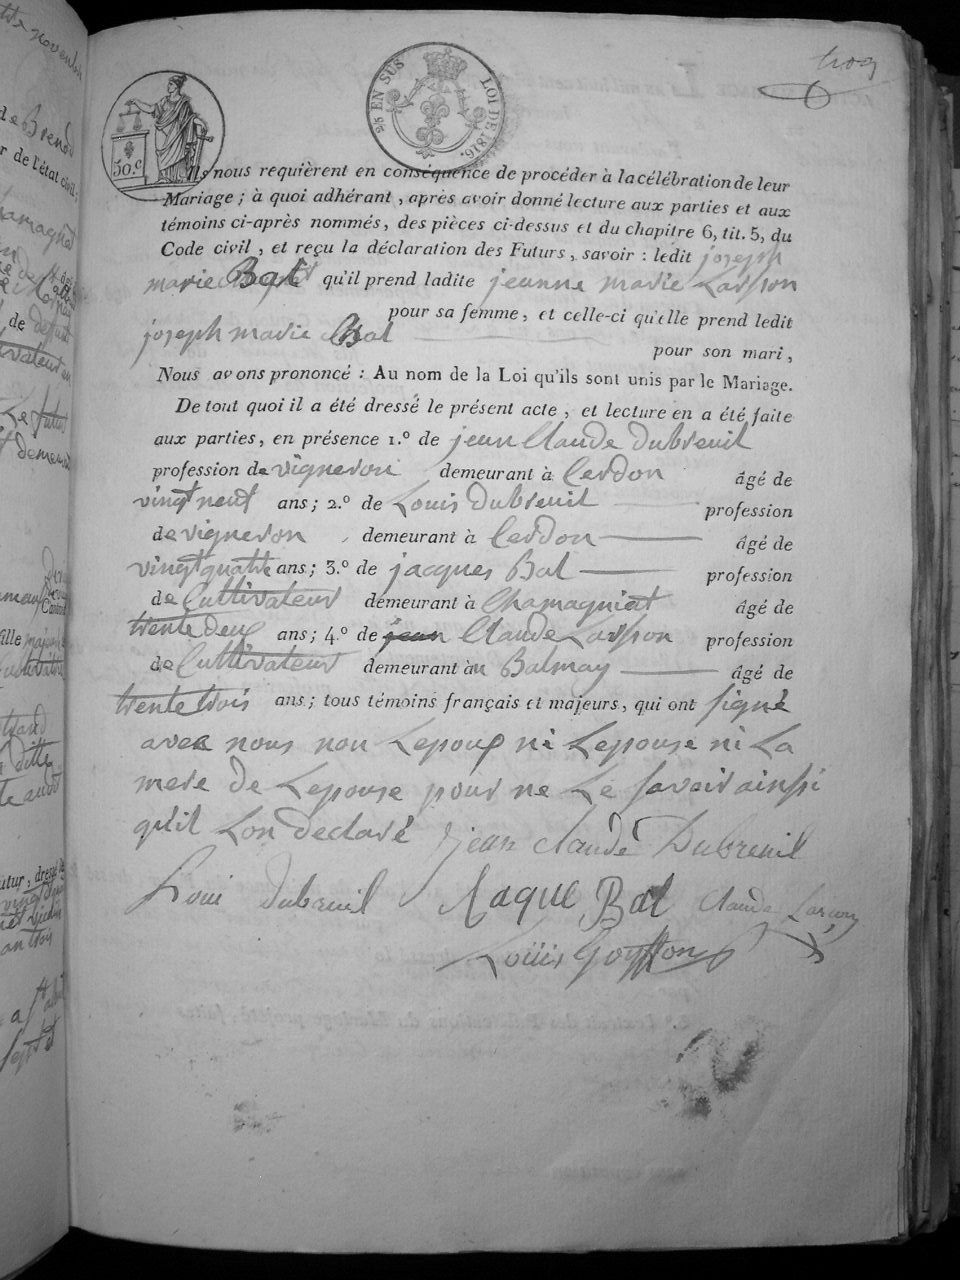 trois
2/5 EN SUS
LOI DE 1816.
50.c
Ils nous requièrent en conséquence de procéder à la célébration de leur
Mariage ; à quoi adhérant , après avoir donné lecture aux parties et aux
témoins ci-après nommés, des pièces ci-dessus et du chapitre 6, tit. 5, du
Code civil , et reçu la déclaration des Futurs , savoir : ledit joseph
marie Bal qu'il prend ladite jeanne marie Larson
pour sa femme , et celle-ci qu'elle prend ledit
joseph marie Bal
pour son mari ,
Nous avons prononcé : Au nom de la Loi qu'ils sont unis par le Mariage.
De tout quoi il a été dressé le présent acte , et lecture en a été faite
aux parties, en présence 1.o de jean Claude Dubreuil
profession de vigneron demeurant à Cerdon âgé de
vingt neuf ans ; 2.o de Louis Dubreuil profession
de vigneron , demeurant à Cerdon âgé de
vingt quatre ans ; 3.o de jacques Bal profession
de Cultivateur demeurant à Chamagniat âgé de
trente deux ans ; 4.o de jean Claude Larson profession
de Cultivateur demeurant àu Balmay âgé de
trente trois ans ; tous témoins français et majeurs, qui ont signé
avec nous non Lepoux ni Lepouse ni La
mere de Lepouse pour ne Le savoir ainsi
qu'il Lon declaré jean claude Dubreuil
Loui dubreuil Jaque Bal Claude Larçon
Louis Goyffon